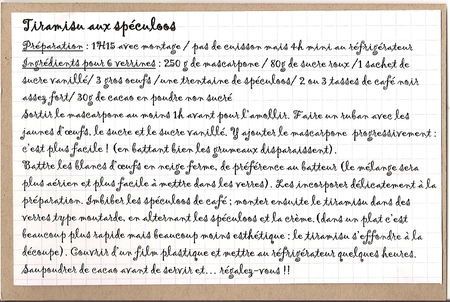 Tiramisu aux spéculoos
Préparation : 1H15 avec montage / pas de cuisson mais 4h mini au réfrigérateur
Ingrédients pour 6 verrines : 250 g de mascarpone / 80g de sucre roux /1 sachet de
sucre vanillé/ 3 gros oeufs /une trentaine de spéculoos/ 2 ou 3 tasses de café noir
assez fort/ 30g de cacao en poudre non sucré
Sortir le mascarpone au moins 1h avant pour l'amollir. Faire un ruban avec les
jaunes d'œufs, le sucre et le sucre vanillé. Y ajouter le mascarpone progressivement :
c'est plus facile ! (en battant bien les grumeaux disparaissent).
Battre les blancs d'œufs en neige ferme, de préférence au batteur (le mélange sera
plus aérien et plus facile à mettre dans les verres). Les incorporer délicatement à la
préparation. Imbiber les spéculoos de café ; monter ensuite le tiramisu dans des
verres type moutarde, en alternant les spéculoos et la crème. (dans un plat c'est
beaucoup plus rapide mais beaucoup moins esthétique : le tiramisu s'effondre à la
découpe). Couvrir d'un film plastique et mettre au réfrigérateur quelques heures.
Saupoudrer de cacao avant de servir et... régalez-vous !!